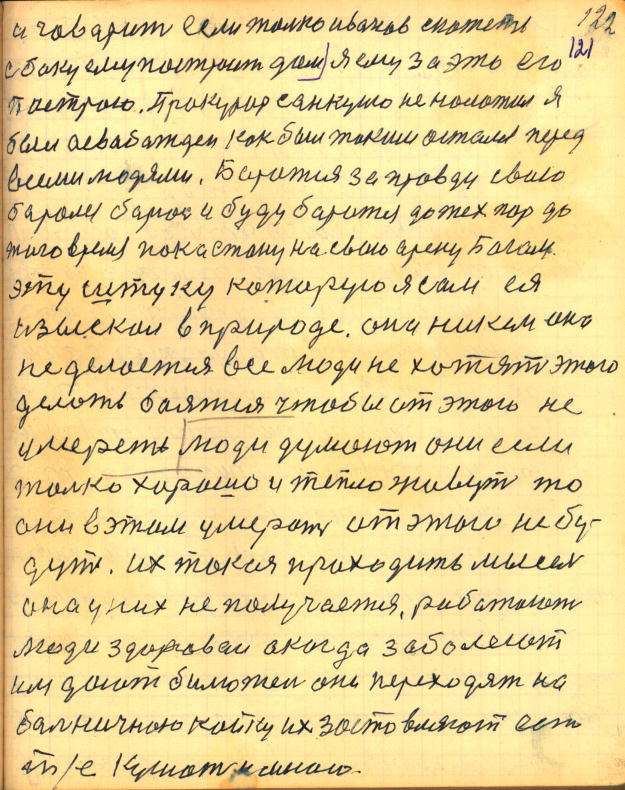 122
и говарит если толко иванов скажеть
121
с боку ему построит дом я ему за это его
Построю. Прокурор санкцию не наложил я
был асвабажден как был таким остался перед
всеми людями. Боротся за правду свою
баролся барюс и буду баротся до тех пор до
того время пока стану на свою арену Богам.
эту штуку которую я сам ея
изыскал в природе. она никем она
не делается все люди не хотят этого
делоть баятся чтобы от этого не
умереть люди думают они если
толко хорошо и тепло живут то
они в этом умерать от этого не бу-
дут. их такая праходить мысел
она у них не получается, работают
люди здороваи а когда заболеют
им дают билютен они переходят на
балничною койку их заставляют
т/е Кушат много.